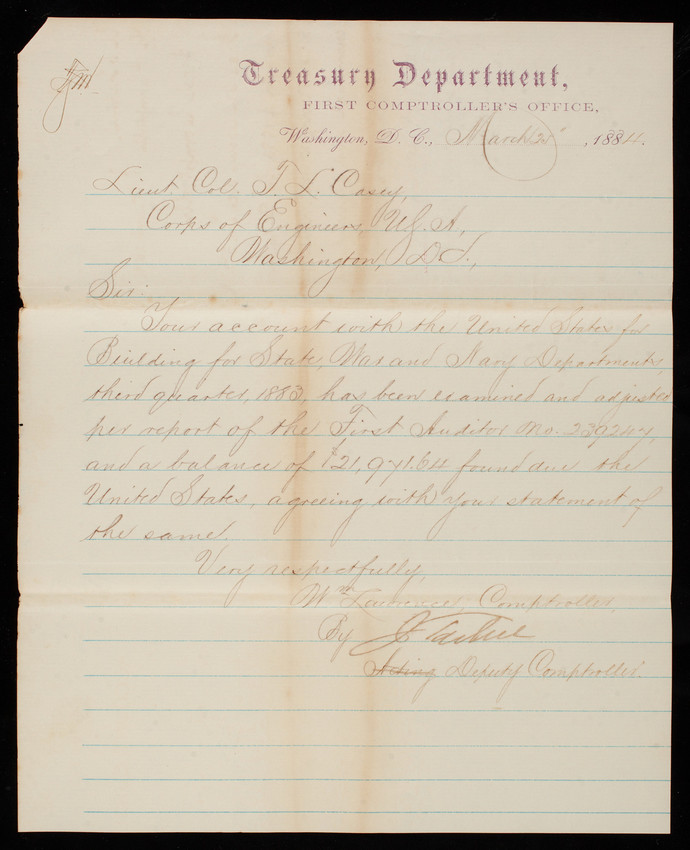 Treasury Department,
FIRST COMPTROLLER'S OFFICE,
Washington, D. C., March 21, 1884.
Lieut. Col. T. L. Casey,
Corps of Engineers, U.S.A.,
Washington, D.C.,
Sir:
Your account with the United States for
Building for State, War and Navy Departments,
third quarter, 1883, has been examined and adjusted
per report of the First Auditor No. 239247,
and a balance of $21,971.64 found due the
United States, agreeing with your statement of
the same.
Very respectfully,
Wm Lawrence, Comptroller,
By
Acting Deputy Comptroller.